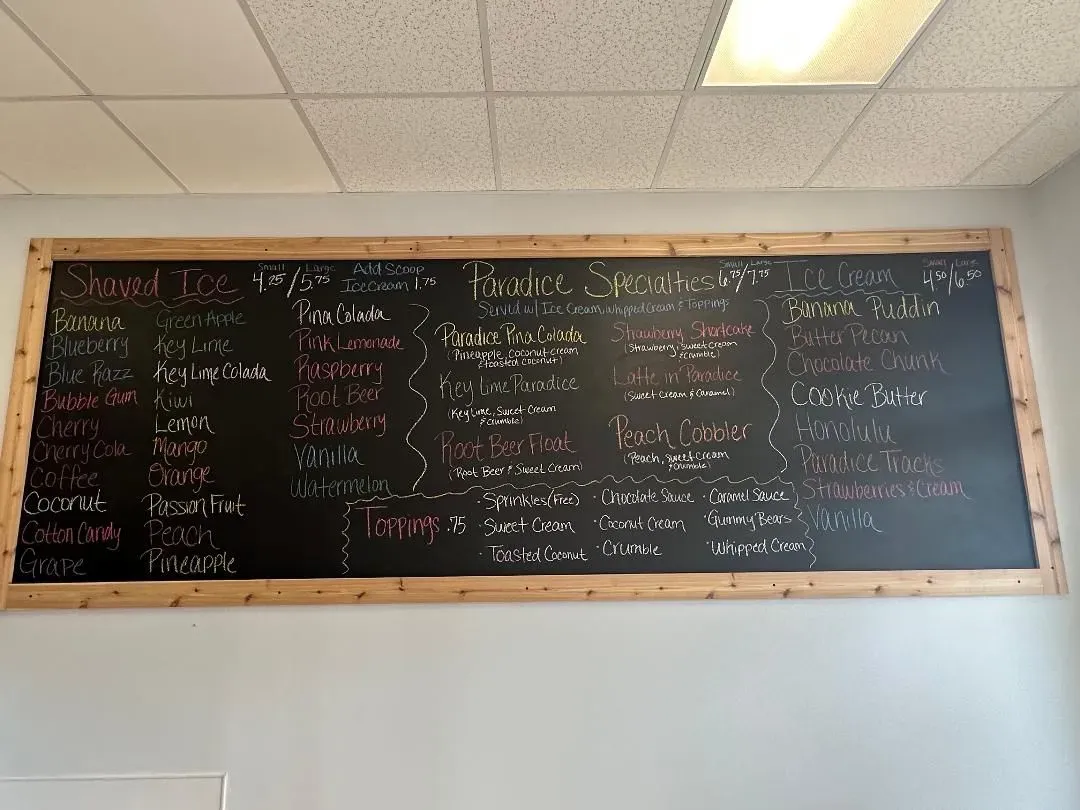 Shaved Ice
Small Large
4.25/5.75
Add Scoop
Ice Cream 1.75
Banana
Blueberry
Blue Razz
Bubble Gum
Cherry
Cherry Cola
Coffee
Coconut
Cotton Candy
Grape
Green Apple
Key Lime
Key Lime Colada
Kiwi
Lemon
Mango
Orange
Passion Fruit
Peach
Pineapple
Pina Colada
Pink Lemonade
Raspberry
Root Beer
Strawberry
Vanilla
Watermelon
Paradice Specialties
Small Large
6.75/7.75
Served w/ Ice Cream, Whipped Cream & Toppings
Paradice Pina Colada
(Pineapple, Coconut Cream
& toasted coconut)
Key Lime Paradice
(Key Lime, Sweet Cream
& Crumble)
Root Beer Float
(Root Beer & Sweet Cream)
Strawberry Shortcake
(Strawberry, Sweet Cream
& Crumble)
Latte in Paradice
(Sweet Cream & Caramel)
Peach Cobbler
(Peach, Sweet Cream
& Crumble)
Toppings .75
· Sprinkles (Free)
· Sweet Cream
· Toasted Coconut
· Chocolate Sauce
· Coconut Cream
· Crumble
· Caramel Sauce
· Gummy Bears
· Whipped Cream
Ice Cream
Small Large
4.50/6.50
Banana Puddin
Butter Pecan
Chocolate Chunk
Cookie Butter
Honolulu
Paradice Tracks
Strawberries & Cream
Vanilla